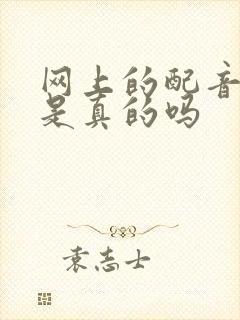 网上的配音
是真的吗
袁志士